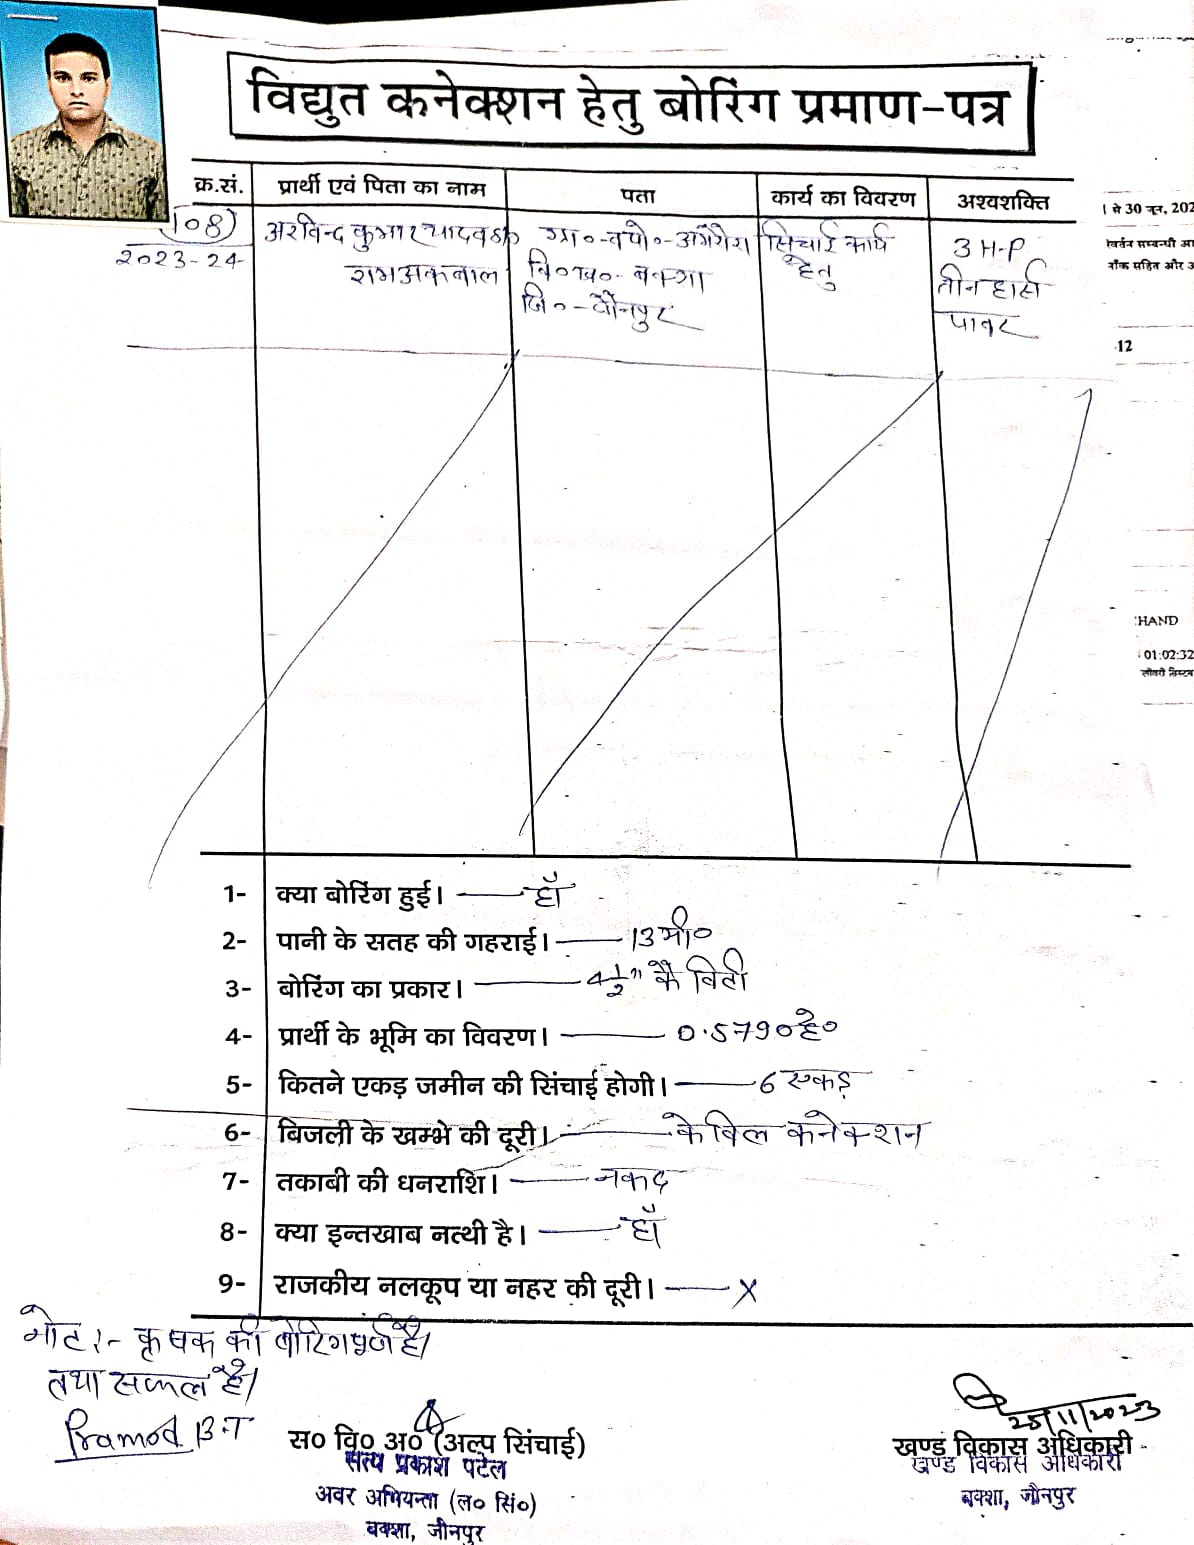 विद्युत कनेक्शन हेतु बोरिंग प्रमाण-पत्र
क्र.सं. प्रार्थी एवं पिता का नाम पता कार्य का विवरण अश्वशक्ति
108 अरविन्द कुमार यादव S/o ग्रा०-व पो०- सिचाई कार्य 3 H-P
2023-24 रामअकबाल वि०ख०- बक्शा हेतु तीन हार्स
जि०-जौनपुर पावर
1- क्या बोरिंग हुई। हाँ
2- पानी के सतह की गहराई। 13मी०
3- बोरिंग का प्रकार। 4½" कैविटी
4- प्रार्थी के भूमि का विवरण। 0.5790है०
5- कितने एकड़ जमीन की सिंचाई होगी। 6 एकड़
6- बिजली के खम्भे की दूरी। केबिल कनेक्शन
7- तकाबी की धनराशि। नकद
8- क्या इन्तखाब नत्थी है। हाँ
9- राजकीय नलकूप या नहर की दूरी। X
नोट:- कृषक की बोरिंग पूर्ण है।
तथा सफल है।
Pramod B.T
स० वि० अ० (अल्प सिंचाई)
सत्य प्रकाश पटेल
अवर अभियन्ता (ल० सिं०)
बक्शा, जौनपुर
25/11/2023
खण्ड विकास अधिकारी
खण्ड विकास अधिकारी
बक्शा, जौनपुर
1 से 30 जून, 202
र्वितन सम्बन्धी आ
नॉक सहित और उ
12
HAND
01:02:32